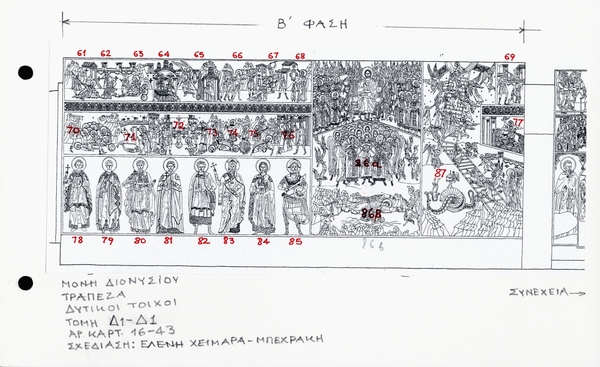 Β΄ ΦΑΣΗ
61 62 63 64 65 66 67 68 69
70 71 72 73 74 75 76 77
86α
87
86β
78 79 80 81 82 83 84 85
86β
ΜΟΝΗ ΔΙΟΝΥΣΙΟΥ
ΤΡΑΠΕΖΑ
ΔΥΤΙΚΟΙ ΤΟΙΧΟΙ
ΤΟΜΗ Δ1-Δ1
ΑΡ. ΚΑΡΤ. 16-43
ΣΧΕΔΙΑΣΗ: ΕΛΕΝΗ ΧΕΙΜΑΡΑ-ΜΠΕΧΡΑΚΗ
ΣΥΝΕΧΕΙΑ→